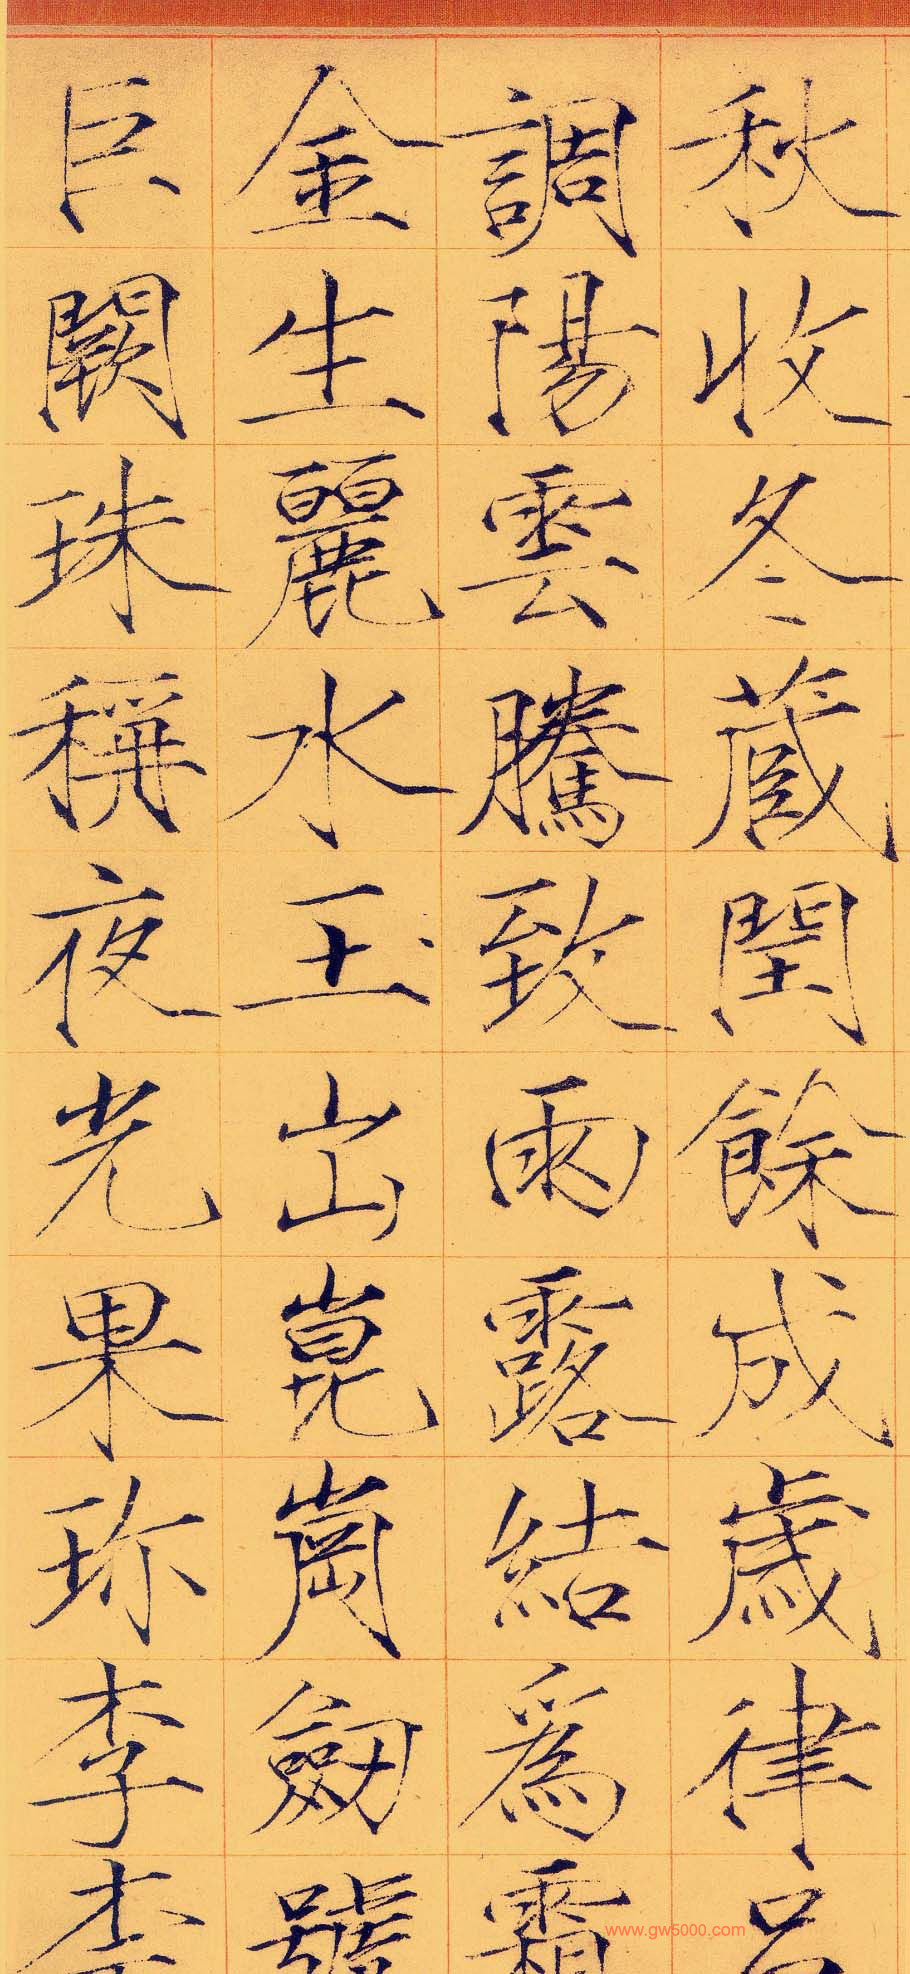 秋收冬蔵閏餘成歲律呂
調陽雲騰致雨露結爲霜
金生麗水玉出崑崗劒號
巨闕珠稱夜光果珎李柰
www.gw5000.com